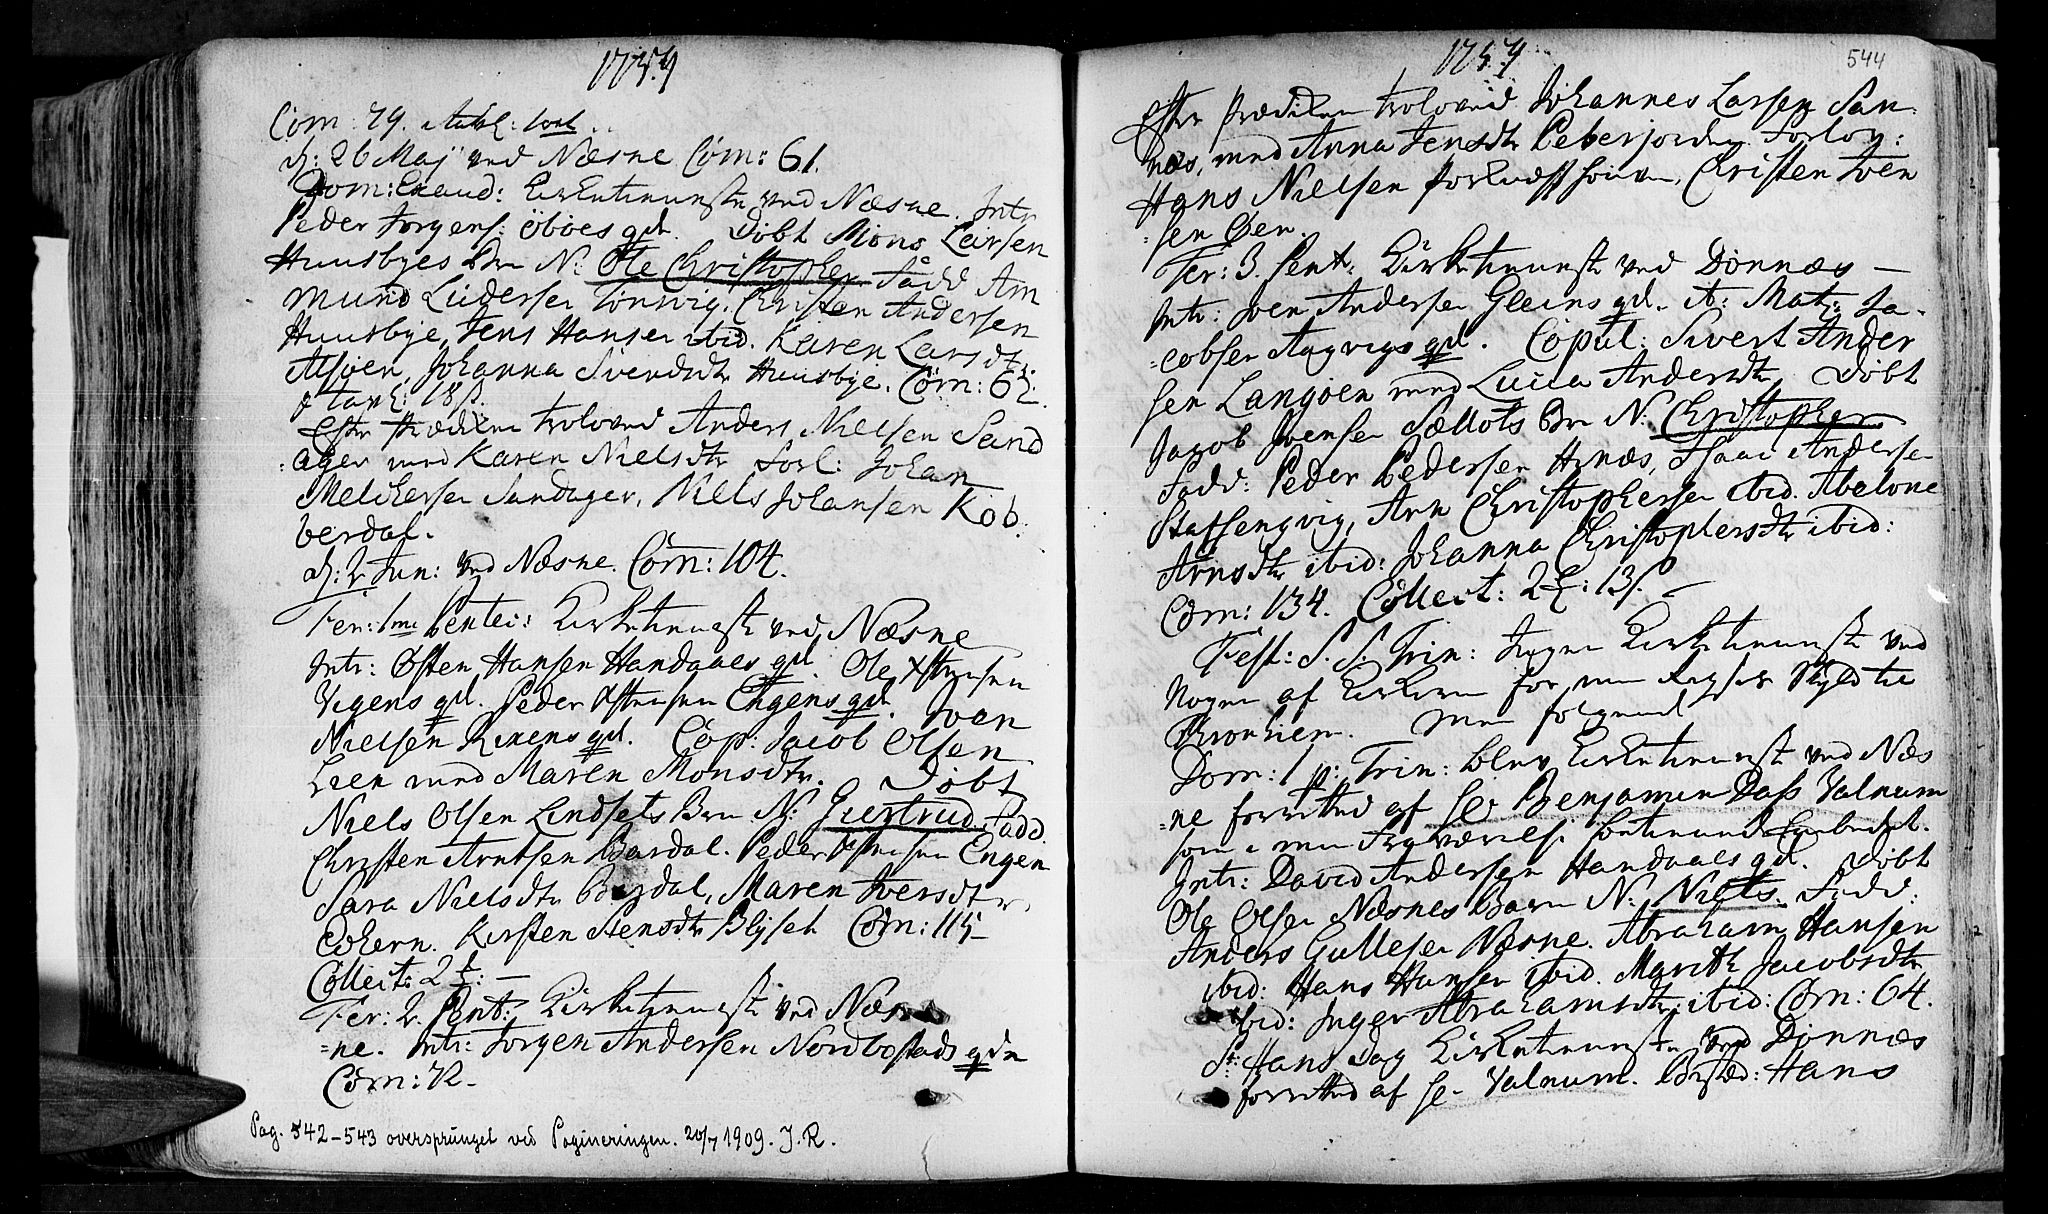 1754
Com: 79.
d: 26 Maj ved Næsne Com: 61.
Dom: Exaud: Kirketienniste ved Næsne. Intr
Peder Jørgens: öböes qd. Döbt Mons Larsen
Huusbyes Brn N: Ole Christopher Fadd Am
mund Lüdersen Tönvig, Christen Andersen
Huusbye, Jens Hansen ibid. Karen Larsdtr
Alsöen, Johanna Svendsdtr Huusbye. Com: 62.
Tavl: 18 s.
Efter Prædiken troloved Anders Nielsen Sand
=ager med Karen Nielsdtr Forl: Johan
Melchersen Sandager, Niels Johansen Kob
berdal.
d: 2 Jun: ved Næsne. Com: 104.
Fer: 1me Pentec: Kirketienniste ved Næsne
Intr: Östen Hansen Handaaes qd. Ole Xstensen
Vigens qd. Peder Xstensen Engens qd. Iven
Nielsen Rixens qd. Cop: Jacob Olsen
Leen med Maren Monsdtr. Döbt
Niels Olsen Lindsets Brn N: Giertrud. Fadd
Christen Arntsen Bardal. Peder Xstensen Engen
Sara Nielsdtr Bardal, Maren Iversdtr
Kirsten Stensdtr Com: 115-
Collect: 2 : -
Fer: 2. Pent: Kirketienniste ved Næs
=ne. Intr: Jörgen Andersen Nordbostads qde
Com: 72-
Pag. 542-543 oversprunget ved Pagineringen. 20/7 1909. J. R.
1754
544
Efter Prædiken troloved Johannes Larsen San
næs, med Anna Jensdtr Peberjorden Forlov:
Hans Nielsen Christen Iven
=sen Öen.
Fer: 3. Pent: Kirketienniste ved Dönnæs -
Intr: Iven Andersen Gleins qd. it: Mat: Ja-
=cobsen Aagvigs qd. Copul: Sivert Ander
sen Langöen med Lucia Andersdtr Döbt
Jacob Ivensen Sællots Brn N: Christopher
Fadd: Peder Pedersen Hnæs, Isaac Andersen
Staffengvig, Arn Christophersen ibid. Abelone
Arnsdtr ibid: Johanna Christophersdtr ibid:
Com: 134. Collect: 2 : 13 s. -
Fest: S. S. Trin: Ingen Kirketienniste ved
Nogen af Kirkerne for min Reyses Skyld til
Tronhiem. Men folgende
Dom: 1 p: Trin: blev Kirketienniste ved Næs
=ne forrettet af Hr Benjamin Dass Valnum
som i min Fraværelse betiente Embedet.
Intr: David Andersen Handaaes qd. Döbt
Ole Olsen Næsnes Barn N: Niels. Fadd:
Anders Gullesen Næsne. Abraham Hansen
ibid: Hans Hansen ibid. Marith Jacobsdtr
ibid: Inger Abrahamsdtr ibid: Com: 64.
St: Hans Dag Kirketienniste ved Dönnæs
forrettet af Hr Valnum. Hans